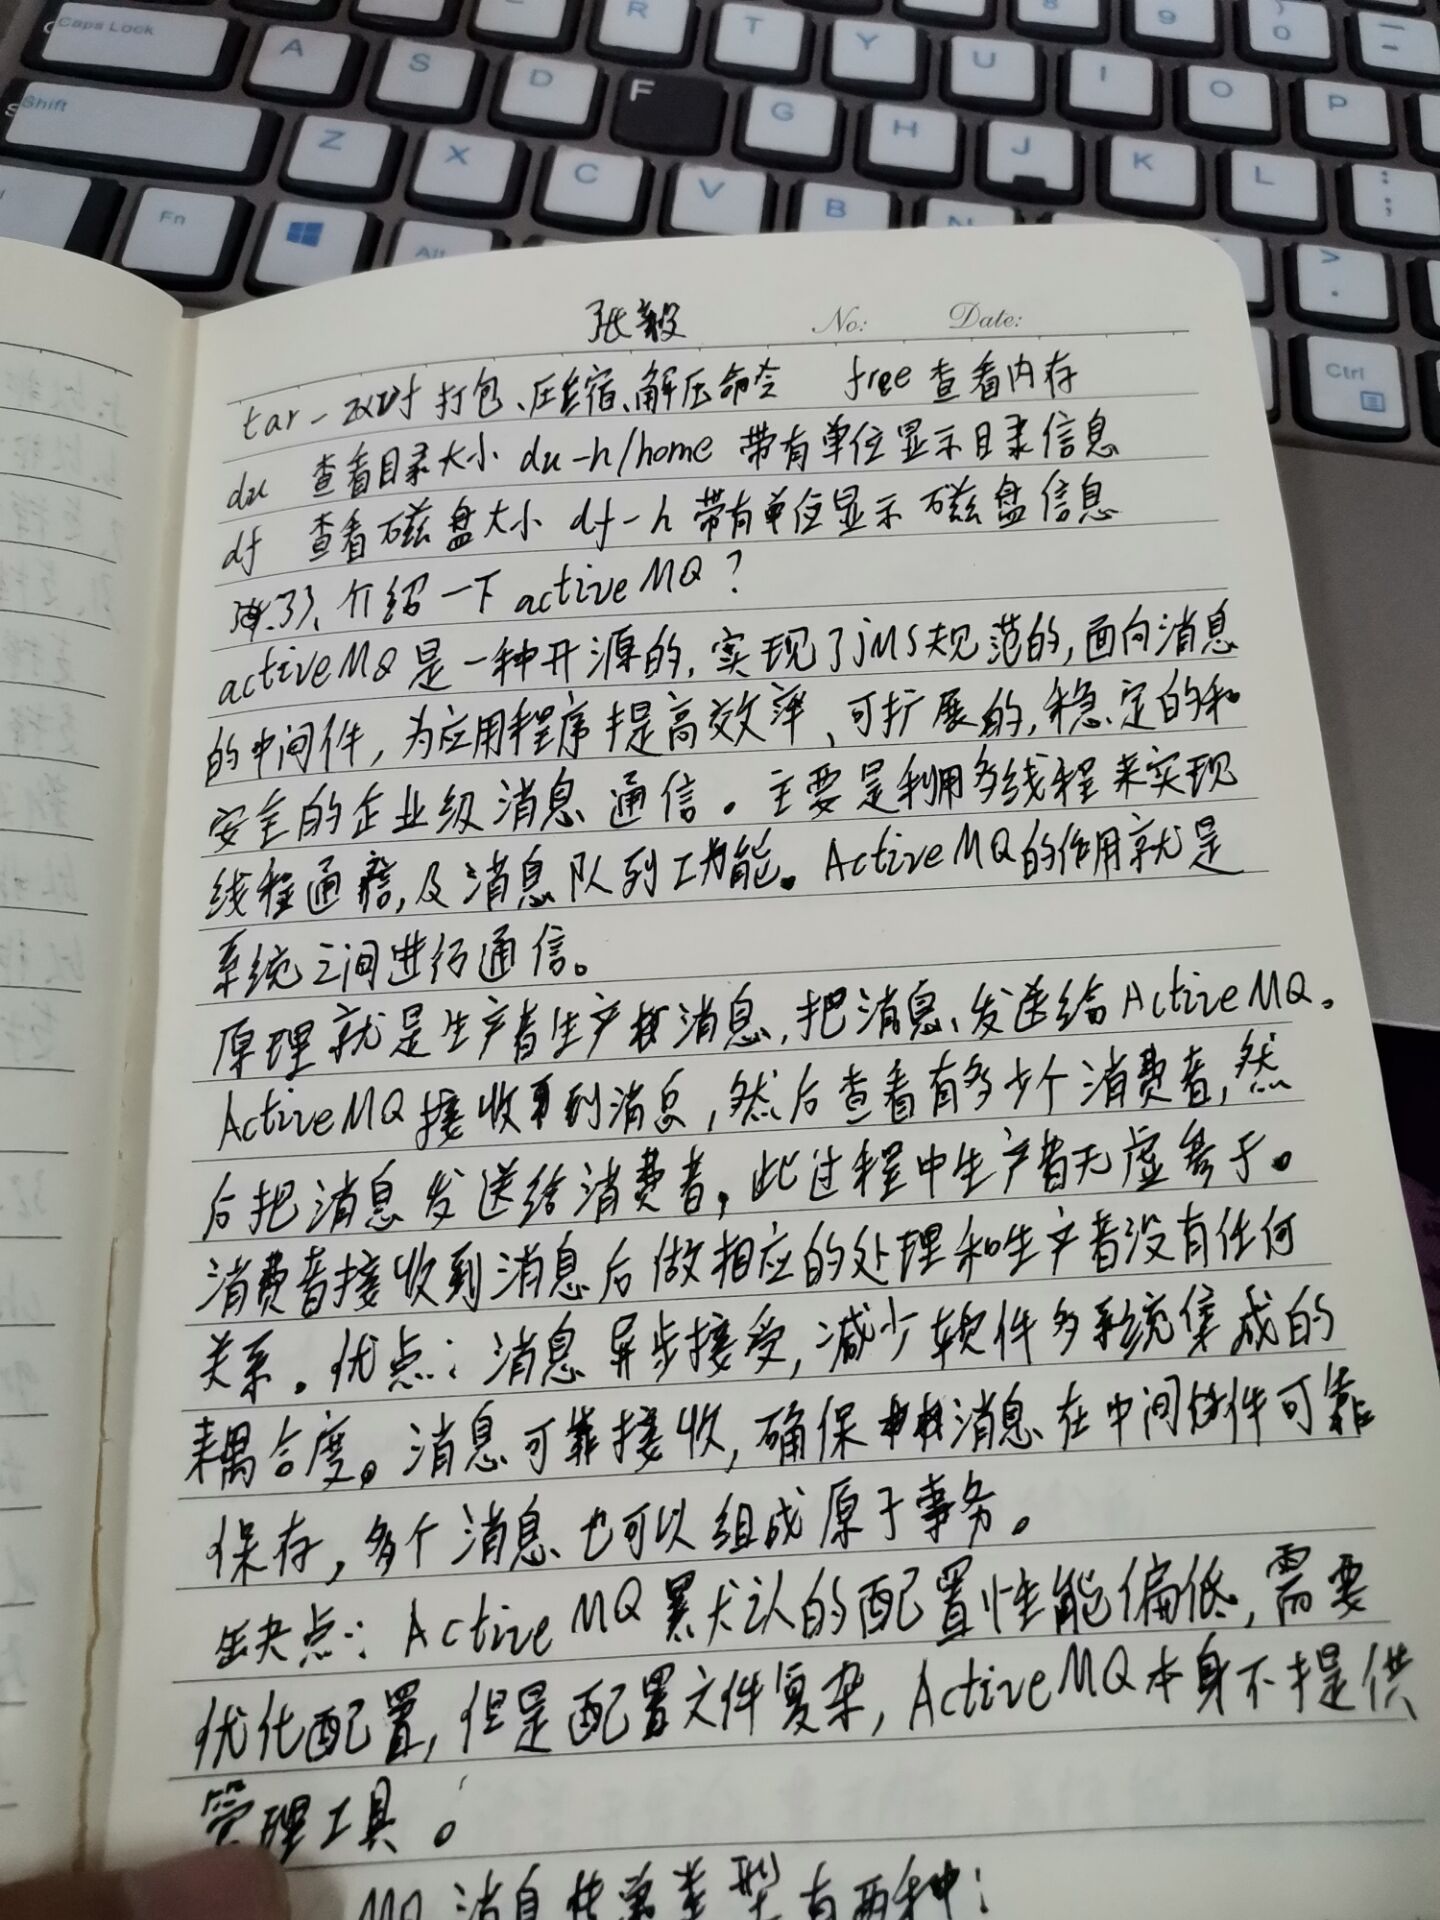 Caps Lock A S D F G H J K L : ;
R T Y U I O P
8 9 ) 0 —
Shift Z X C V B N > .
Fn Alt Ctrl
张毅 No: Date:
tar - zxvf 打包、压缩、解压命令 free 查看内存
du 查看目录大小 du-h/home 带有单位显示目录信息
df 查看磁盘大小 df-h 带有单位显示 磁盘信息
介绍一下 activeMQ？
activeMQ是一种开源的，实现了JMS规范的，面向消息
的中间件，为应用程序提高效率、可扩展的，稳定的和
安全的企业级消息通信。主要是利用多线程来实现
线程通信，及消息队列功能。ActiveMQ的作用就是
系统之间进行通信。
原理就是生产者生产消息，把消息发送给ActiveMQ。
ActiveMQ接收到消息，然后查看有多少个消费者，然
后把消息发送给消费者，此过程中生产者无虚参于。
消费者接收到消息后做相应的处理和生产者没有任何
关系。优点：消息异步接受，减少软件多系统集成的
耦合度。消息可靠接收，确保消息在中间件可靠
保存，多个消息也可以组成原子事务。
缺点：ActiveMQ默认的配置性能偏低，需要
优化配置，但是配置文件复杂，ActiveMQ本身不提供
管理工具。
MQ 消息 类型有两种：